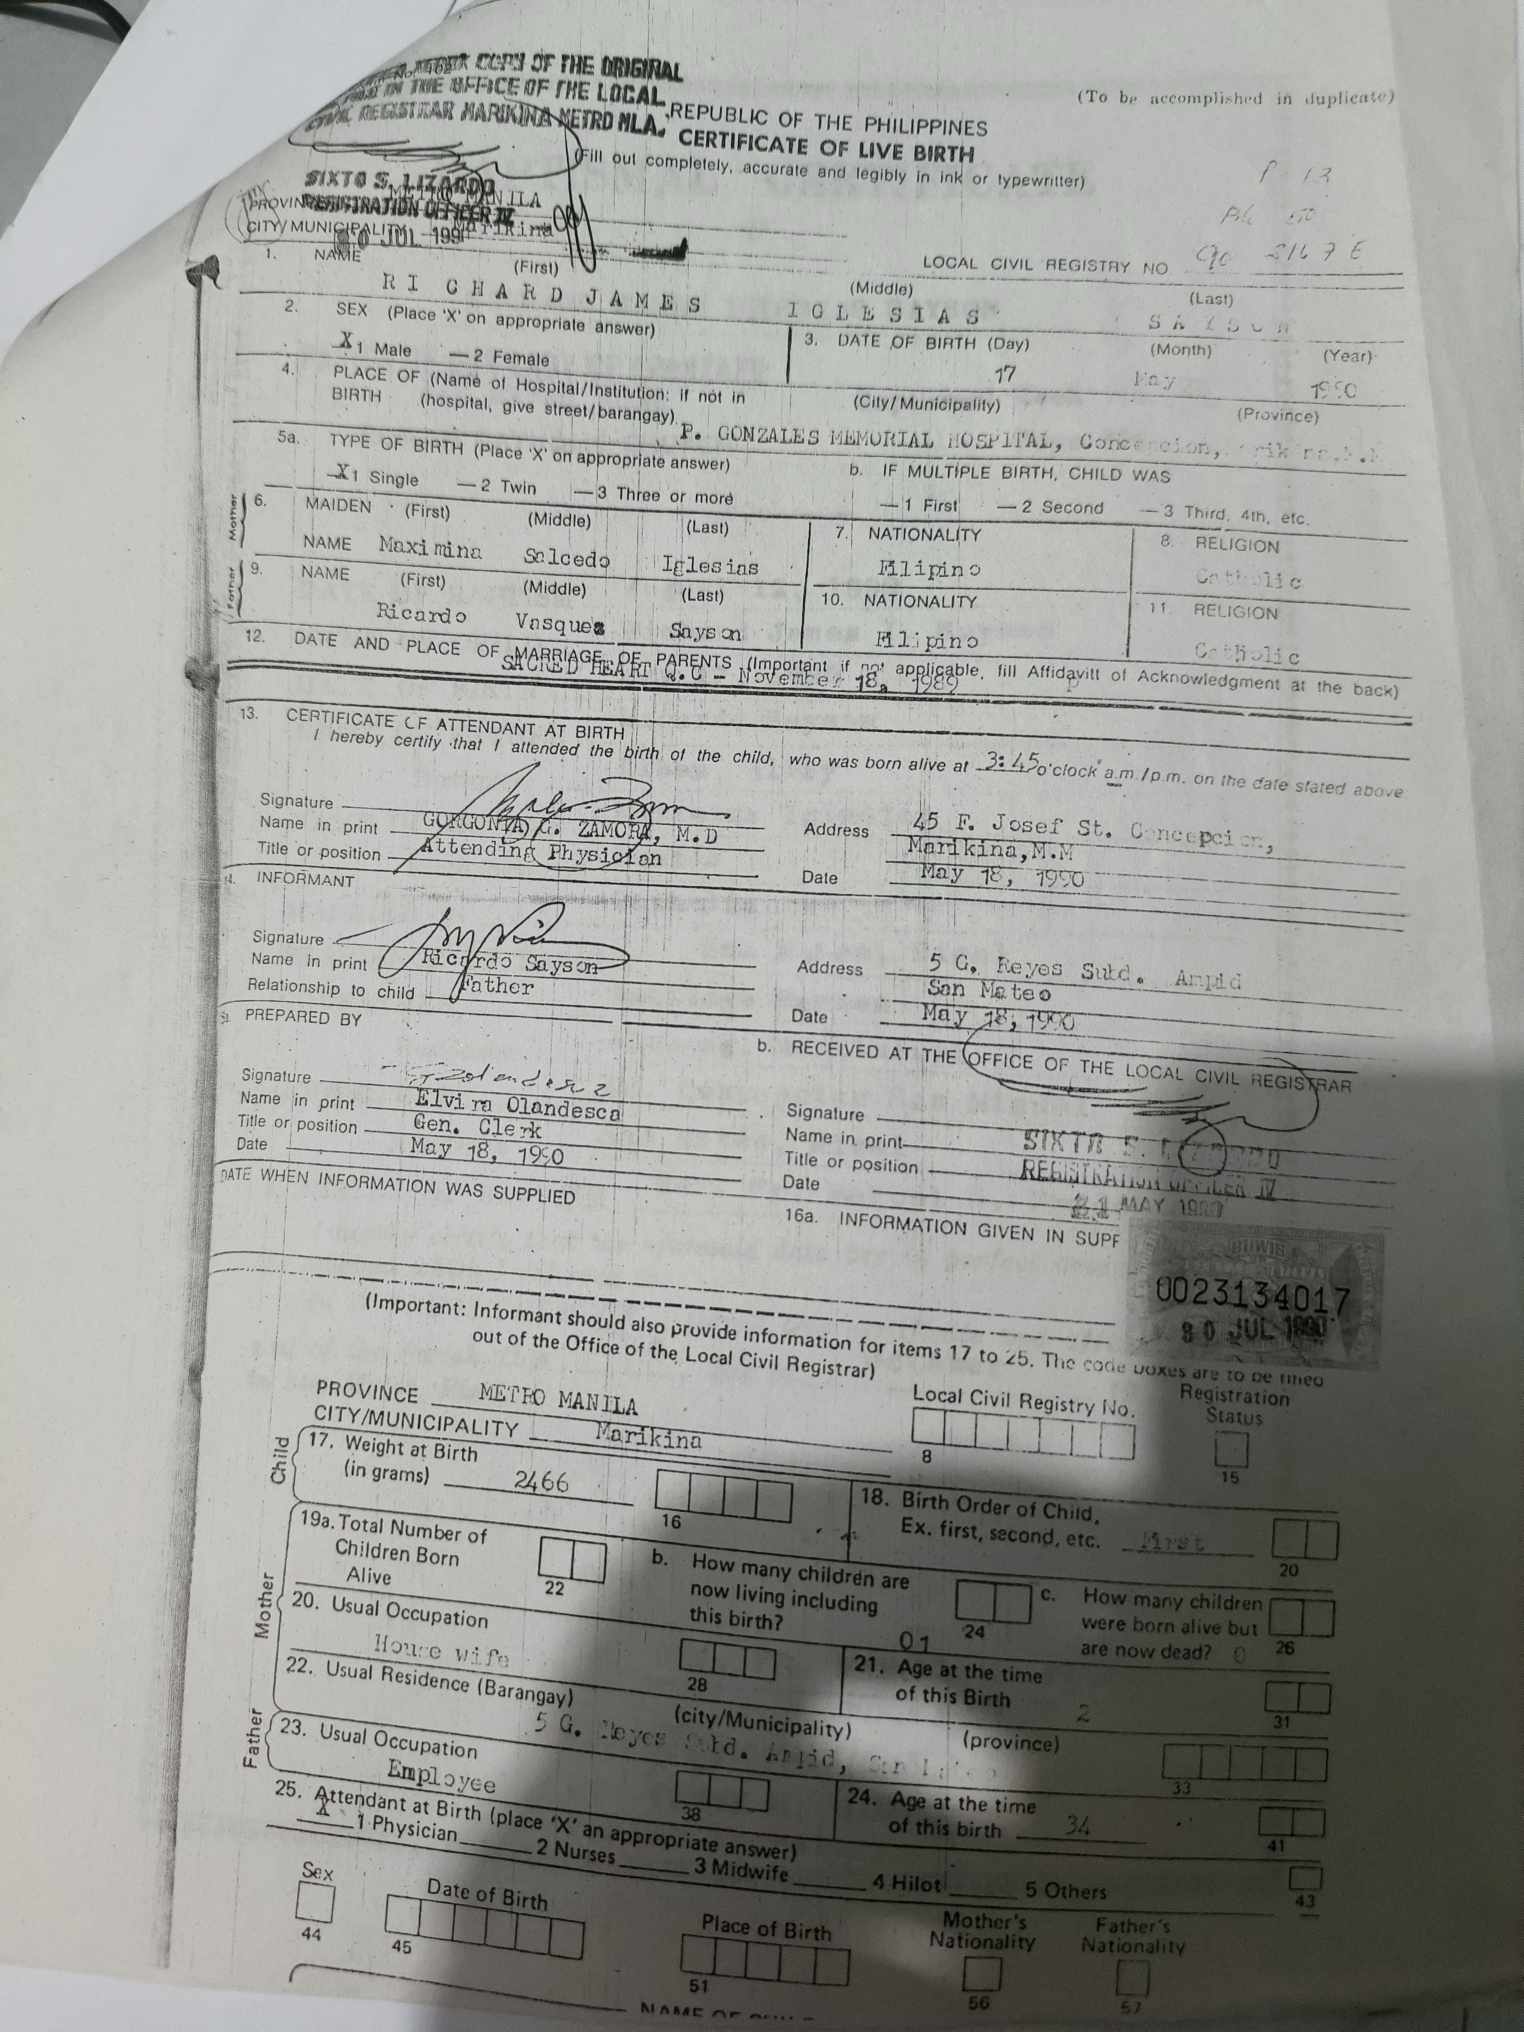 TRUE COPY OF THE ORIGINAL
IN THE OFFICE OF THE LOCAL
CIVIL REGISTRAR MARIKINA METRO MLA.
(To be accomplished in duplicate)
REPUBLIC OF THE PHILIPPINES
CERTIFICATE OF LIVE BIRTH
(Fill out completely, accurate and legibly in ink or typewriter)
SIXTO S. LIZARDO
REGISTRATION OFFICER IV
PROVINCE METRO MANILA
CITY/MUNICIPALITY Marikina
30 JUL 199
LOCAL CIVIL REGISTRY NO
1. NAME (First) (Middle) (Last)
RICHARD JAMES IGLESIAS SAYSON
2. SEX (Place 'X' on appropriate answer)
X 1 Male — 2 Female
3. DATE OF BIRTH (Day) (Month) (Year)
17 May 1990
4. PLACE OF (Name of Hospital/Institution: if not in
BIRTH (hospital, give street/barangay) (City/Municipality) (Province)
P. GONZALES MEMORIAL HOSPITAL, Concepcion,
5a. TYPE OF BIRTH (Place 'X' on appropriate answer)
X 1 Single — 2 Twin — 3 Three or more
b. IF MULTIPLE BIRTH, CHILD WAS
— 1 First — 2 Second — 3 Third, 4th, etc.
Mother
6. MAIDEN (First) (Middle) (Last)
NAME Maximina Salcedo Iglesias
7. NATIONALITY
Filipino
8. RELIGION
Catholic
Father
9. NAME (First) (Middle) (Last)
Ricardo Vasquez Sayson
10. NATIONALITY
Filipino
11. RELIGION
Catholic
12. DATE AND PLACE OF MARRIAGE OF PARENTS (Important if not applicable, fill Affidavitt of Acknowledgment at the back)
SACRED HEART Q.C - November 18, 1989
13. CERTIFICATE OF ATTENDANT AT BIRTH
I hereby certify that I attended the birth of the child, who was born alive at 3:45 o'clock a.m./p.m. on the date stated above
Signature
Name in print GORGONIA G. ZAMORA, M.D
Title or position Attending Physician
Address 45 F. Josef St. Concepcion,
Marikina,M.M
Date May 18, 1990
14. INFORMANT
Signature
Name in print Ricardo Sayson
Relationship to child Father
Address 5 G. Reyes Subd. Ampid
San Mateo
Date May 18, 1990
PREPARED BY
Signature
Name in print Elvira Olandesca
Title or position Gen. Clerk
Date May 18, 1990
b. RECEIVED AT THE OFFICE OF THE LOCAL CIVIL REGISTRAR
Signature
Name in print SIXTO S. LIZARDO
Title or position REGISTRATION OFFICER IV
Date 21 MAY 1990
DATE WHEN INFORMATION WAS SUPPLIED
16a. INFORMATION GIVEN IN SUPP
0023134017
30 JUL 1990
(Important: Informant should also provide information for items 17 to 25. The code boxes are to be filled
out of the Office of the Local Civil Registrar)
PROVINCE METRO MANILA
CITY/MUNICIPALITY Marikina
Local Civil Registry No.
8
Registration
Status
15
Child
17. Weight at Birth
(in grams) 2466
16
18. Birth Order of Child,
Ex. first, second, etc. First
20
Mother
19a. Total Number of
Children Born
Alive
22
b. How many children are
now living including
this birth? 01
24
c. How many children
were born alive but
are now dead? 0
26
20. Usual Occupation
House wife
28
21. Age at the time
of this Birth 2
31
22. Usual Residence (Barangay) (city/Municipality) (province)
5 G. Reyes Subd. Ampid, San Mateo
33
Father
23. Usual Occupation
Employee
38
24. Age at the time
of this birth 34
41
25. Attendant at Birth (place 'X' an appropriate answer)
X 1 Physician 2 Nurses 3 Midwife 4 Hilot 5 Others
43
Sex
44
Date of Birth
45
Place of Birth
51
Mother's
Nationality
56
Father's
Nationality
57